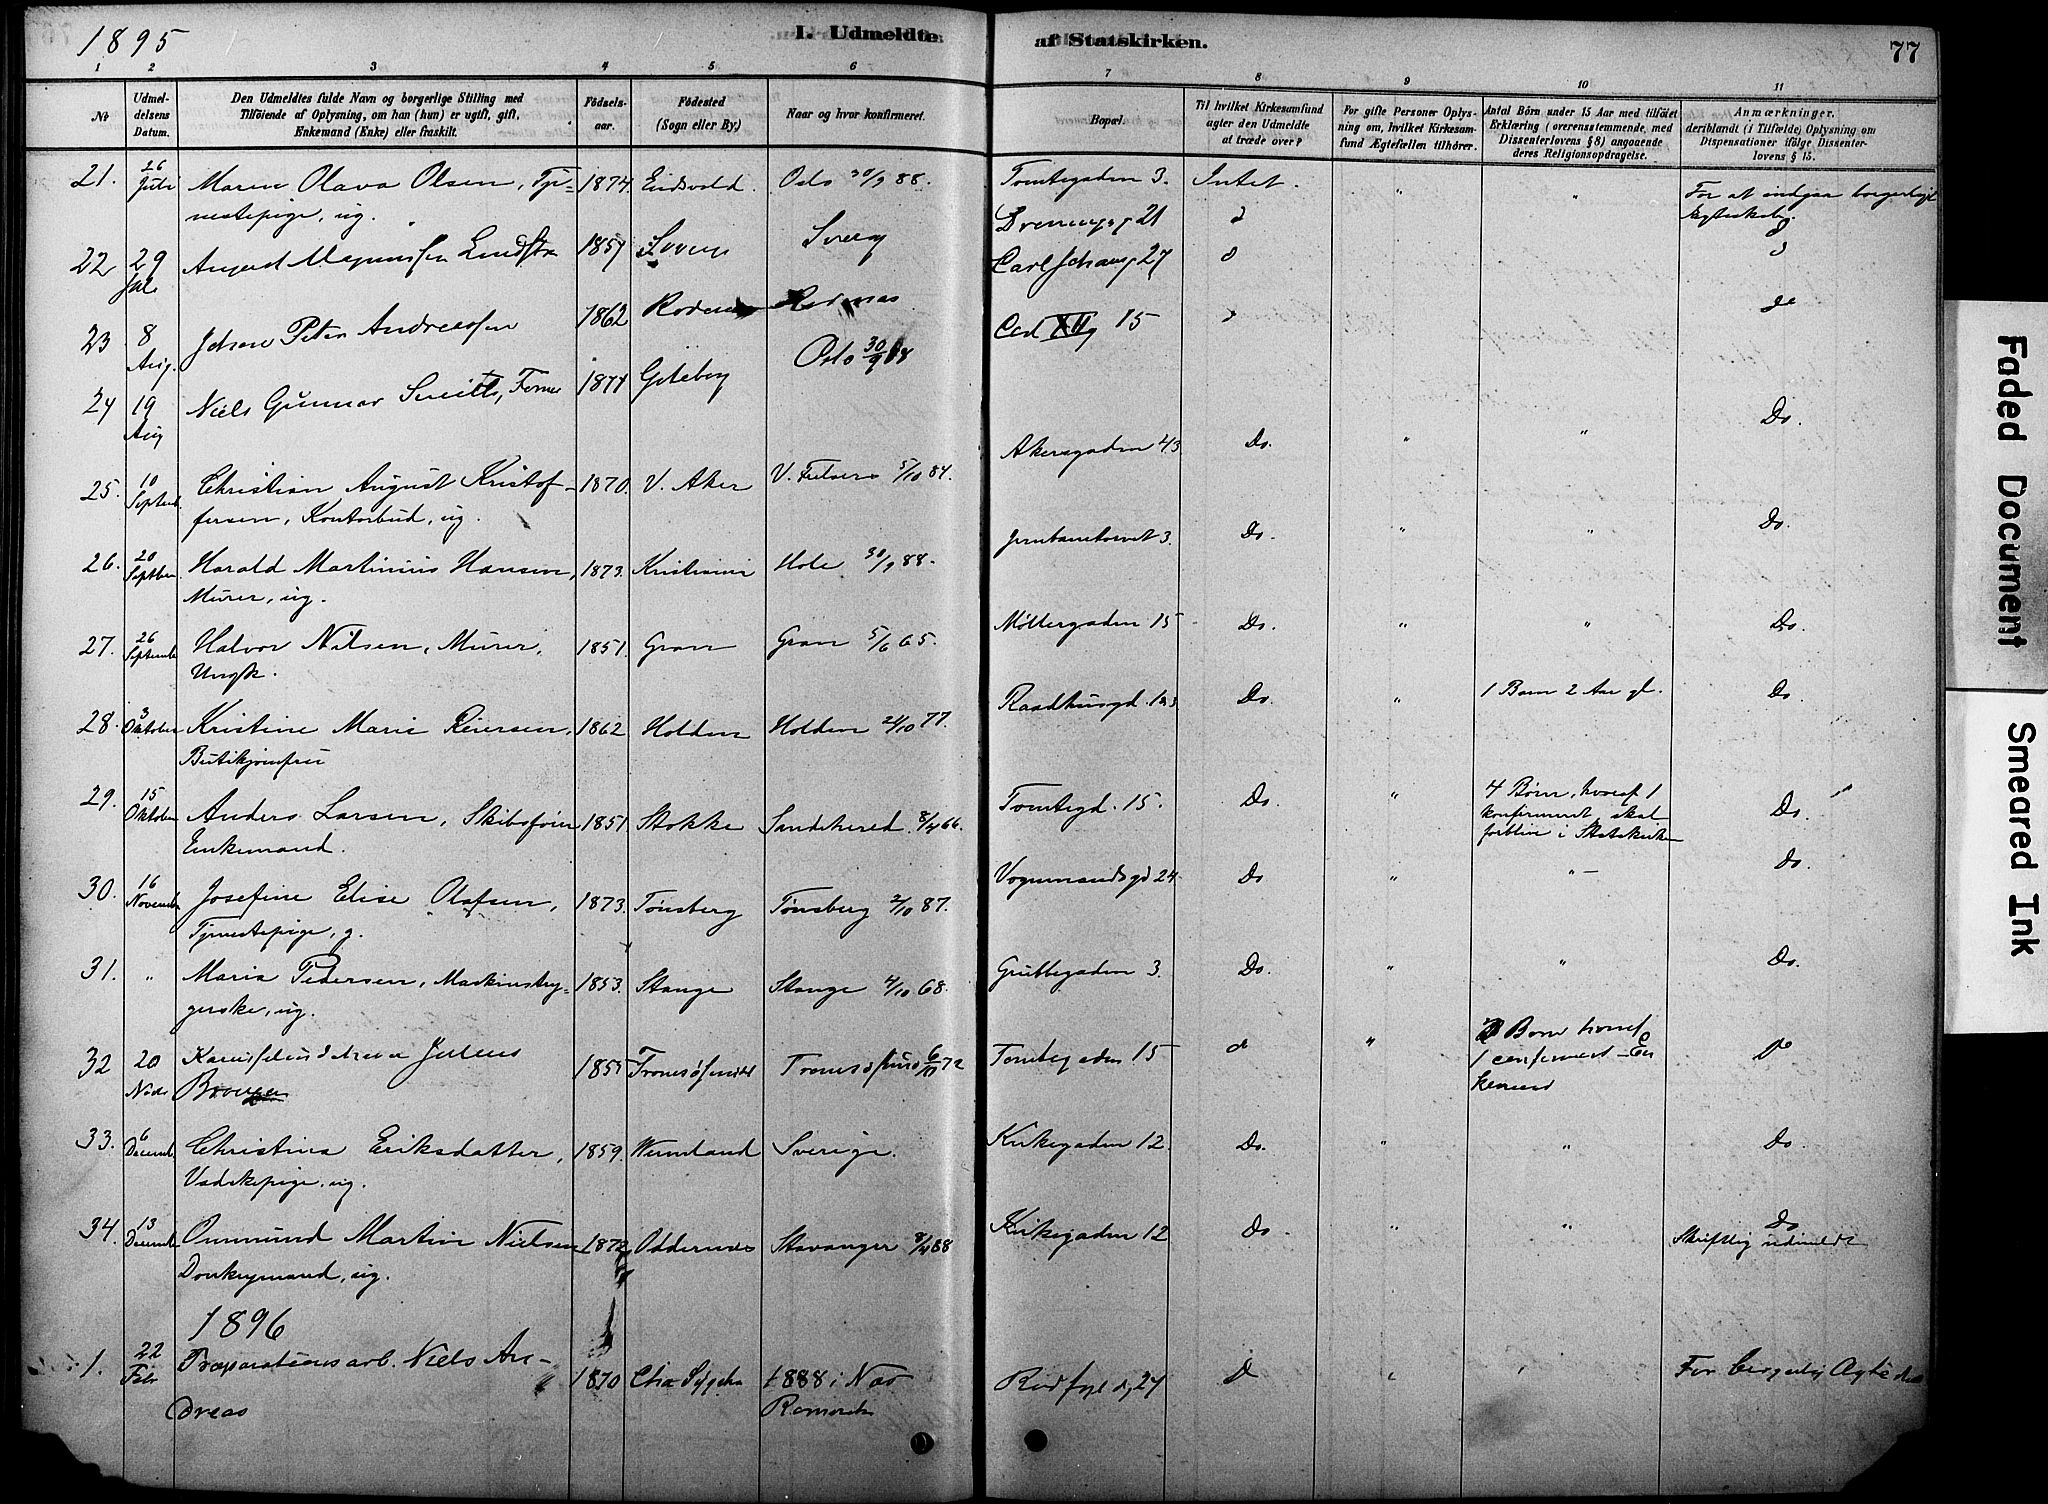 1895
I. Udmeldte af Statskirken.
77
1 2 3 4 5 6 7 8 9 10 11
No
Udmeldelsens Datum.
Den Udmeldtes fulde Navn og borgerlige Stilling med
Tilføiende af Oplysning, om han (hun) er ugift, gift,
Enkemand (Enke) eller fraskilt.
Fødselsaar.
Fødested
(Sogn eller By.)
Naar og hvor konfirmeret.
Bopæl.
Til hvilket Kirkesamfund
agter den Udmeldte
at træde over?
For gifte Personer Oplysning om, hvilket Kirkesamfund Ægtefællen tilhører.
Antal Börn under 15 Aar med tilföiet
Erklæring (overensstemmende, med
Dissenterlovens § 8) angaaende
deres Religionsopdragelse.
Anmærkninger.
deriblandt (i Tilfælde) Oplysning om
Dispensationer ifölge Dissenterlovens § 15.
21. 26 Juli Maren Olava Olsen, Tje- 1874 Eidsvold. Oslo 30/9 88. Tomtegaden 3. Intet. " " For at indgaa borgerligt
nestepige, ug. Ægteskab.
22 29 Jul August Magnussen 1857
23 8 Aug. Johan Peter Andreassen 1862 Carl XII g 15
24 19 Aug Niels Gunnar Göteborg Oslo 30/9
25. 10 Septemb. Christian August Kristof- 1870. V. Aker V. 5/10 84. Akersgaden 43 Do. " " Do.
fersen, Kontorbud, ug.
26. 20 Septber. Harald Martinius Hansen, 1873. Kristiania Hole 30/9 88. Jernbanetorvet 3. Do. " " Do.
Murer, ug.
27. 26 September Halvor Nilsen, Murer, 1851. Gran Gran 5/6 65. Møllergaden 15 Do. " " Do.
Ungk.
28. 3 Oktober Kristine Marie Reiersen, 1862 Holden Holden 24/10 77. Raadhusgd. Do. " 1 Barn 2 Aar gl. Do.
Butikjomfru
29. 15 Oktober Anders Larsen, 1851. Stokke Sandeherred 8/4 66. Tomtegd. 15. Do. " 4 Børn, hvoraf 1 Do.
Enkemand. konfirmeret skal
forblive i Statskirken
30. 16 November Josefine Elise Olafsen, 1873. Tønsberg Tønsberg 2/10 87. Vognmandsgd 24 Do " " Do.
Tjenestepige, g.
31. " Maria Pedersen, Maskinstry- 1853. Stange Stange 4/10 68. Grubbegaden 3. Do. " " Do.
gerske, ug.
32 20 Julius 1855 Tromsøsundet Tromsøsund Tomtegaden 15 d " Børn hvoraf Do
1 confirmert
33. 6 Decemb Christina Eriksdatter, 1859. Wermland Sverige. Kirkegaden 12. Do. " " Do.
Vadskepige, ug.
34. 13 Decemb Ommund Martin Nielsen 1872 Oddernes Stavanger Kirkegaden 12 Do. " " Do
Donkeymand, ug. Skriftlig udmeldt
1896
1. 22 Febr Præparationsarb. Niels An- 1870 1888 i Næs D For borgerlig
dreas
Faded Document
Smeared Ink